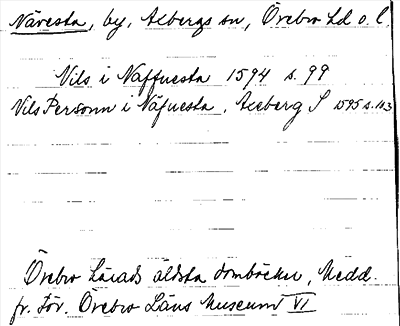 Nävesta, by, Almbergs sn, Örebro hd o. l.
Nils i Naffuesta 1594 s. 99
Nils Personn i Näfuesta, Aleberg S 1595 s. 113
Örebro härads äldsta domböcker, Medd.
fr. för. Örebro Läns Museum VI